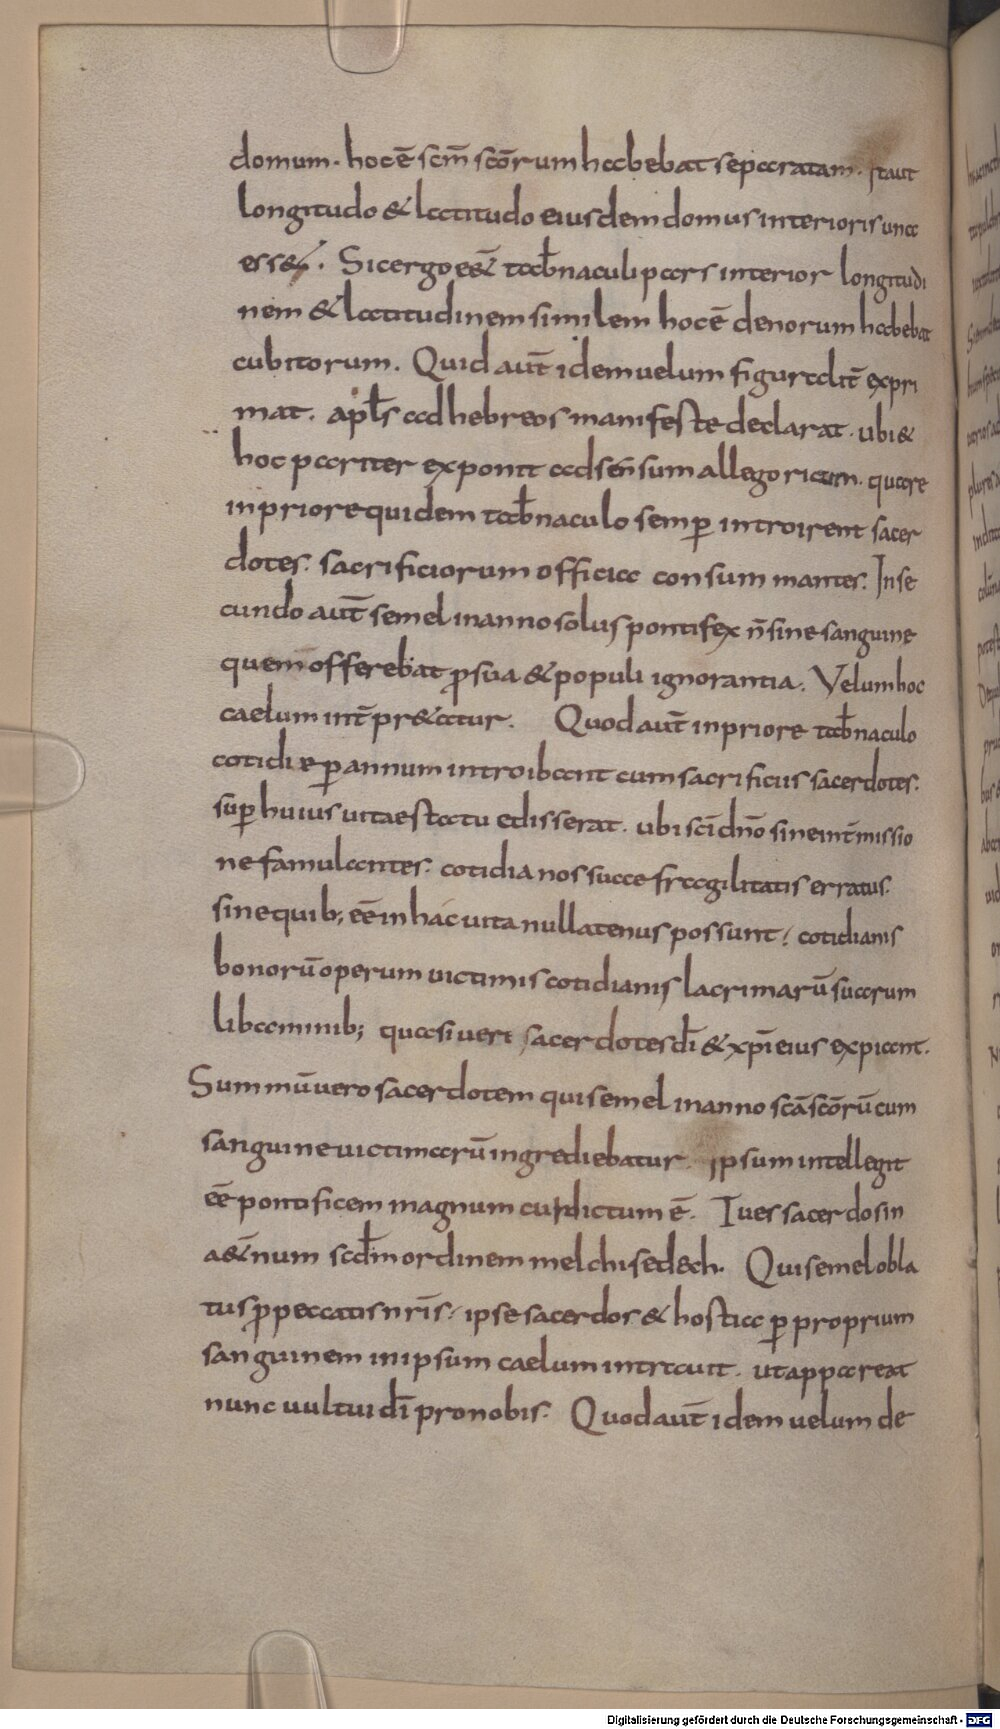 domum. hoc ē scm̄ scōrum habebat separatam. Ita ut
longitudo & latitudo eiusdem domus interioris una
ess&. Sic ergo ēē& tab̄naculi pars interior longitudi
nem & latitudinem similem hoc ē denorum habebat
cubitorum. Quid aut̄ idem uelum figuralit̄ expri
mat. apl̄s ad hebreos manifeste declarat. ubi &
hoc pariter exponit ad sen̄sum allegoricum. quare
in priore quidem tab̄naculo semp̄ introirent sacer
dotes. sacrificiorum officia consummantes. In se
cundo aut̄ semel in anno solus pontifex n̄ sine sanguine
quem offerebat p̄ sua & populi ignorantia. Velum hoc
caelum int̄pr&atur. Quod aut̄ in priore tab̄naculo
cotidie p̄ annum introibant cum sacrificiis sacerdotes.
sup̄ huius uitae statu edisserat. ubi sc̄i dn̄o sine int̄missio
ne famulantes. cotidianos suae fragilitatis erratus.
sine quib; ēē in hac uita nullatenus possunt. cotidianis
bonorū operum uictimis cotidianis lacrimarū suarum
libaminib; quasi ueri sacerdotes dī & xpī eius expiant.
Summū uero sacerdotem qui semel in anno scā scōrū cum
sanguine uictimarū ingrediebatur. Ipsum intellegit
ēē pontificem magnum cui dictum ē. Tu es sacerdos in
a&n̄um scdm̄ ordinem melchisedech. Qui semel obla
tus p̄ peccatis nr̄is. ipse sacerdos & hostia p̄ proprium
sanguinem in ipsum caelum intrauit. ut appareat
nunc uultui dī pro nobis. Quod aut̄ idem uelum de
Digitalisierung gefördert durch die Deutsche Forschungsgemeinschaft - DFG